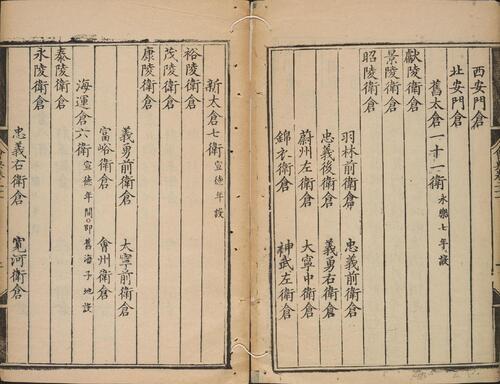 西安門倉
北安門倉
舊太倉一十一衛 永樂七年設
獻陵衛倉
景陵衛倉
昭陵衛倉
羽林前衛倉 忠義前衛倉
忠義後衛倉 義勇右衛倉
蔚州左衛倉 大寧中衛倉
錦衣衛倉 神武左衛倉
新太倉七衛 宣德年設
裕陵衛倉
茂陵衛倉
康陵衛倉
義勇前衛倉 大寧前衛倉
富峪衛倉 會州衛倉
海運倉六衛 宣德年間即舊海子地設
泰陵衛倉
永陵衛倉
忠義右衛倉 寬河衛倉